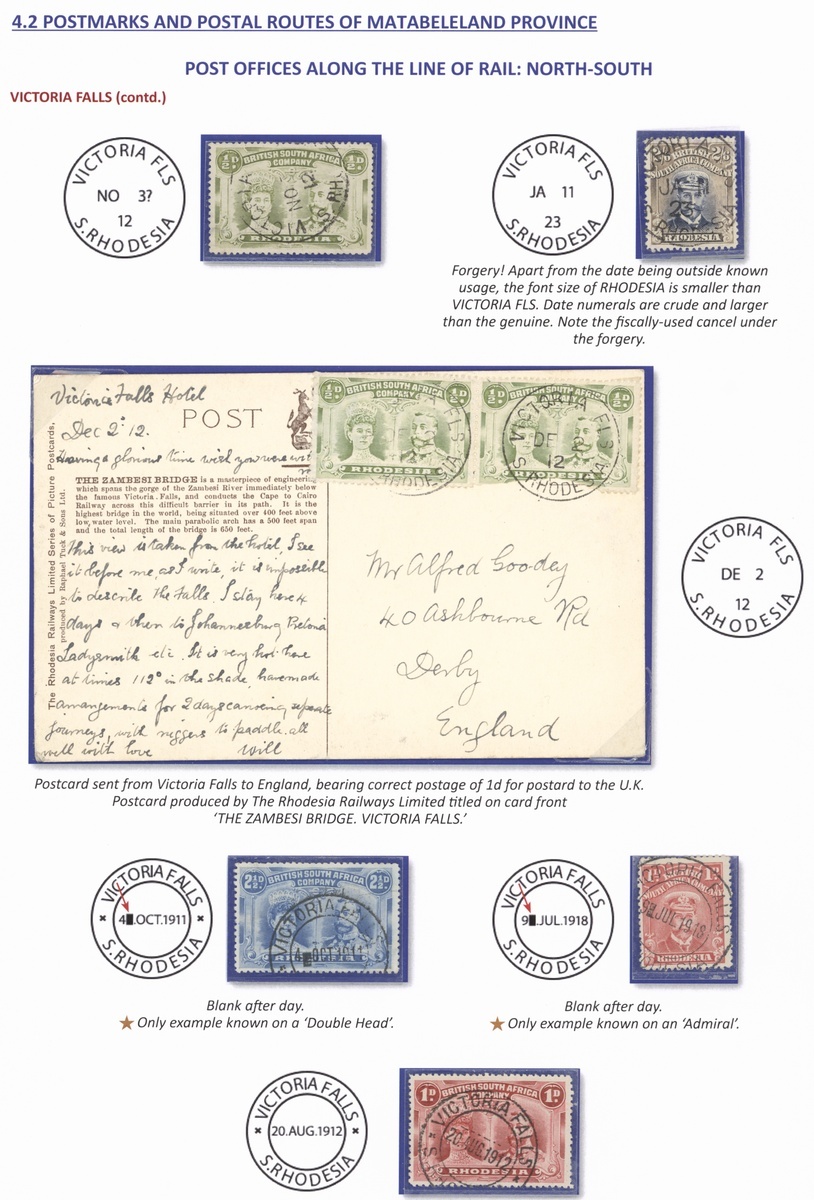 4.2 POSTMARKS AND POSTAL ROUTES OF MATABELELAND PROVINCE
POST OFFICES ALONG THE LINE OF RAIL: NORTH-SOUTH
VICTORIA FALLS (contd.)
VICTORIA FLS
NO 3?
12
S.RHODESIA
½D BRITISH SOUTH AFRICA ½D
COMPANY
RHODESIA
VICTORIA FLS
JA 11
23
S.RHODESIA
BRITISH
SOUTH AFRICA COMPANY
JA 11
23
RHODESIA
Forgery! Apart from the date being outside known
usage, the font size of RHODESIA is smaller than
VICTORIA FLS. Date numerals are crude and larger
than the genuine. Note the fiscally-used cancel under
the forgery.
Victoria Falls Hotel
POST
Dec 2º 12.
Having a glorious time wish you were with
The Rhodesia Railways Limited Series of Picture Postcards,
produced by Raphael Tuck & Sons Ltd.
THE ZAMBESI BRIDGE is a masterpiece of engineering
which spans the gorge of the Zambesi River immediately below
the famous Victoria Falls, and conducts the Cape to Cairo
Railway across this difficult barrier in its path. It is the
highest bridge in the world, being situated over 400 feet above
low water level. The main parabolic arch has a 500 feet span
and the total length of the bridge is 650 feet.
This view is taken from the hotel, I see
it before me, as I write, it is impossible
to describe the Falls. I stay here 4
days & then to Johannesburg Pretoria
Ladysmith etc. It is very hot here
at times 112° in the shade, have made
arrangements for 2 days canoeing, separate
journeys, with niggers to paddle. all
well with love will
½D BRITISH SOUTH AFRICA ½D
COMPANY
RHODESIA
½D BRITISH SOUTH AFRICA ½D
COMPANY
RHODESIA
VICTORIA FLS
DE 2
12
S.RHODESIA
Mr Alfred Goodey
40 Ashbourne Rd
Derby
England
VICTORIA FLS
DE 2
12
S.RHODESIA
Postcard sent from Victoria Falls to England, bearing correct postage of 1d for postard to the U.K.
Postcard produced by The Rhodesia Railways Limited titled on card front
'THE ZAMBESI BRIDGE. VICTORIA FALLS.'
VICTORIA FALLS
4 .OCT.1911
S.RHODESIA
2½D BRITISH SOUTH AFRICA 2½D
COMPANY
VICTORIA
4 OCT 1911
VICTORIA FALLS
9 .JUL.1918
S.RHODESIA
SOUTH AFRICA COMPANY
JUL 1918
RHODESIA
Blank after day.
Only example known on a 'Double Head'.
Blank after day.
Only example known on an 'Admiral'.
VICTORIA FALLS
20.AUG.1912
S.RHODESIA
1D BRITISH SOUTH AFRICA 1D
COMPANY
VICTORIA FALLS
20.AUG.1912
RHODESIA